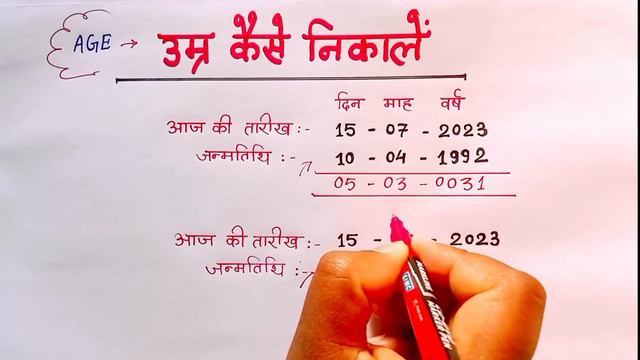 AGE → उम्र कैसे निकालें
दिन माह वर्ष
आज की तारीख :- 15 - 07 - 2023
जन्मतिथि :- 10 - 04 - 1992
05 - 03 - 0031
आज की तारीख :- 15 - - 2023
जन्मतिथि :-